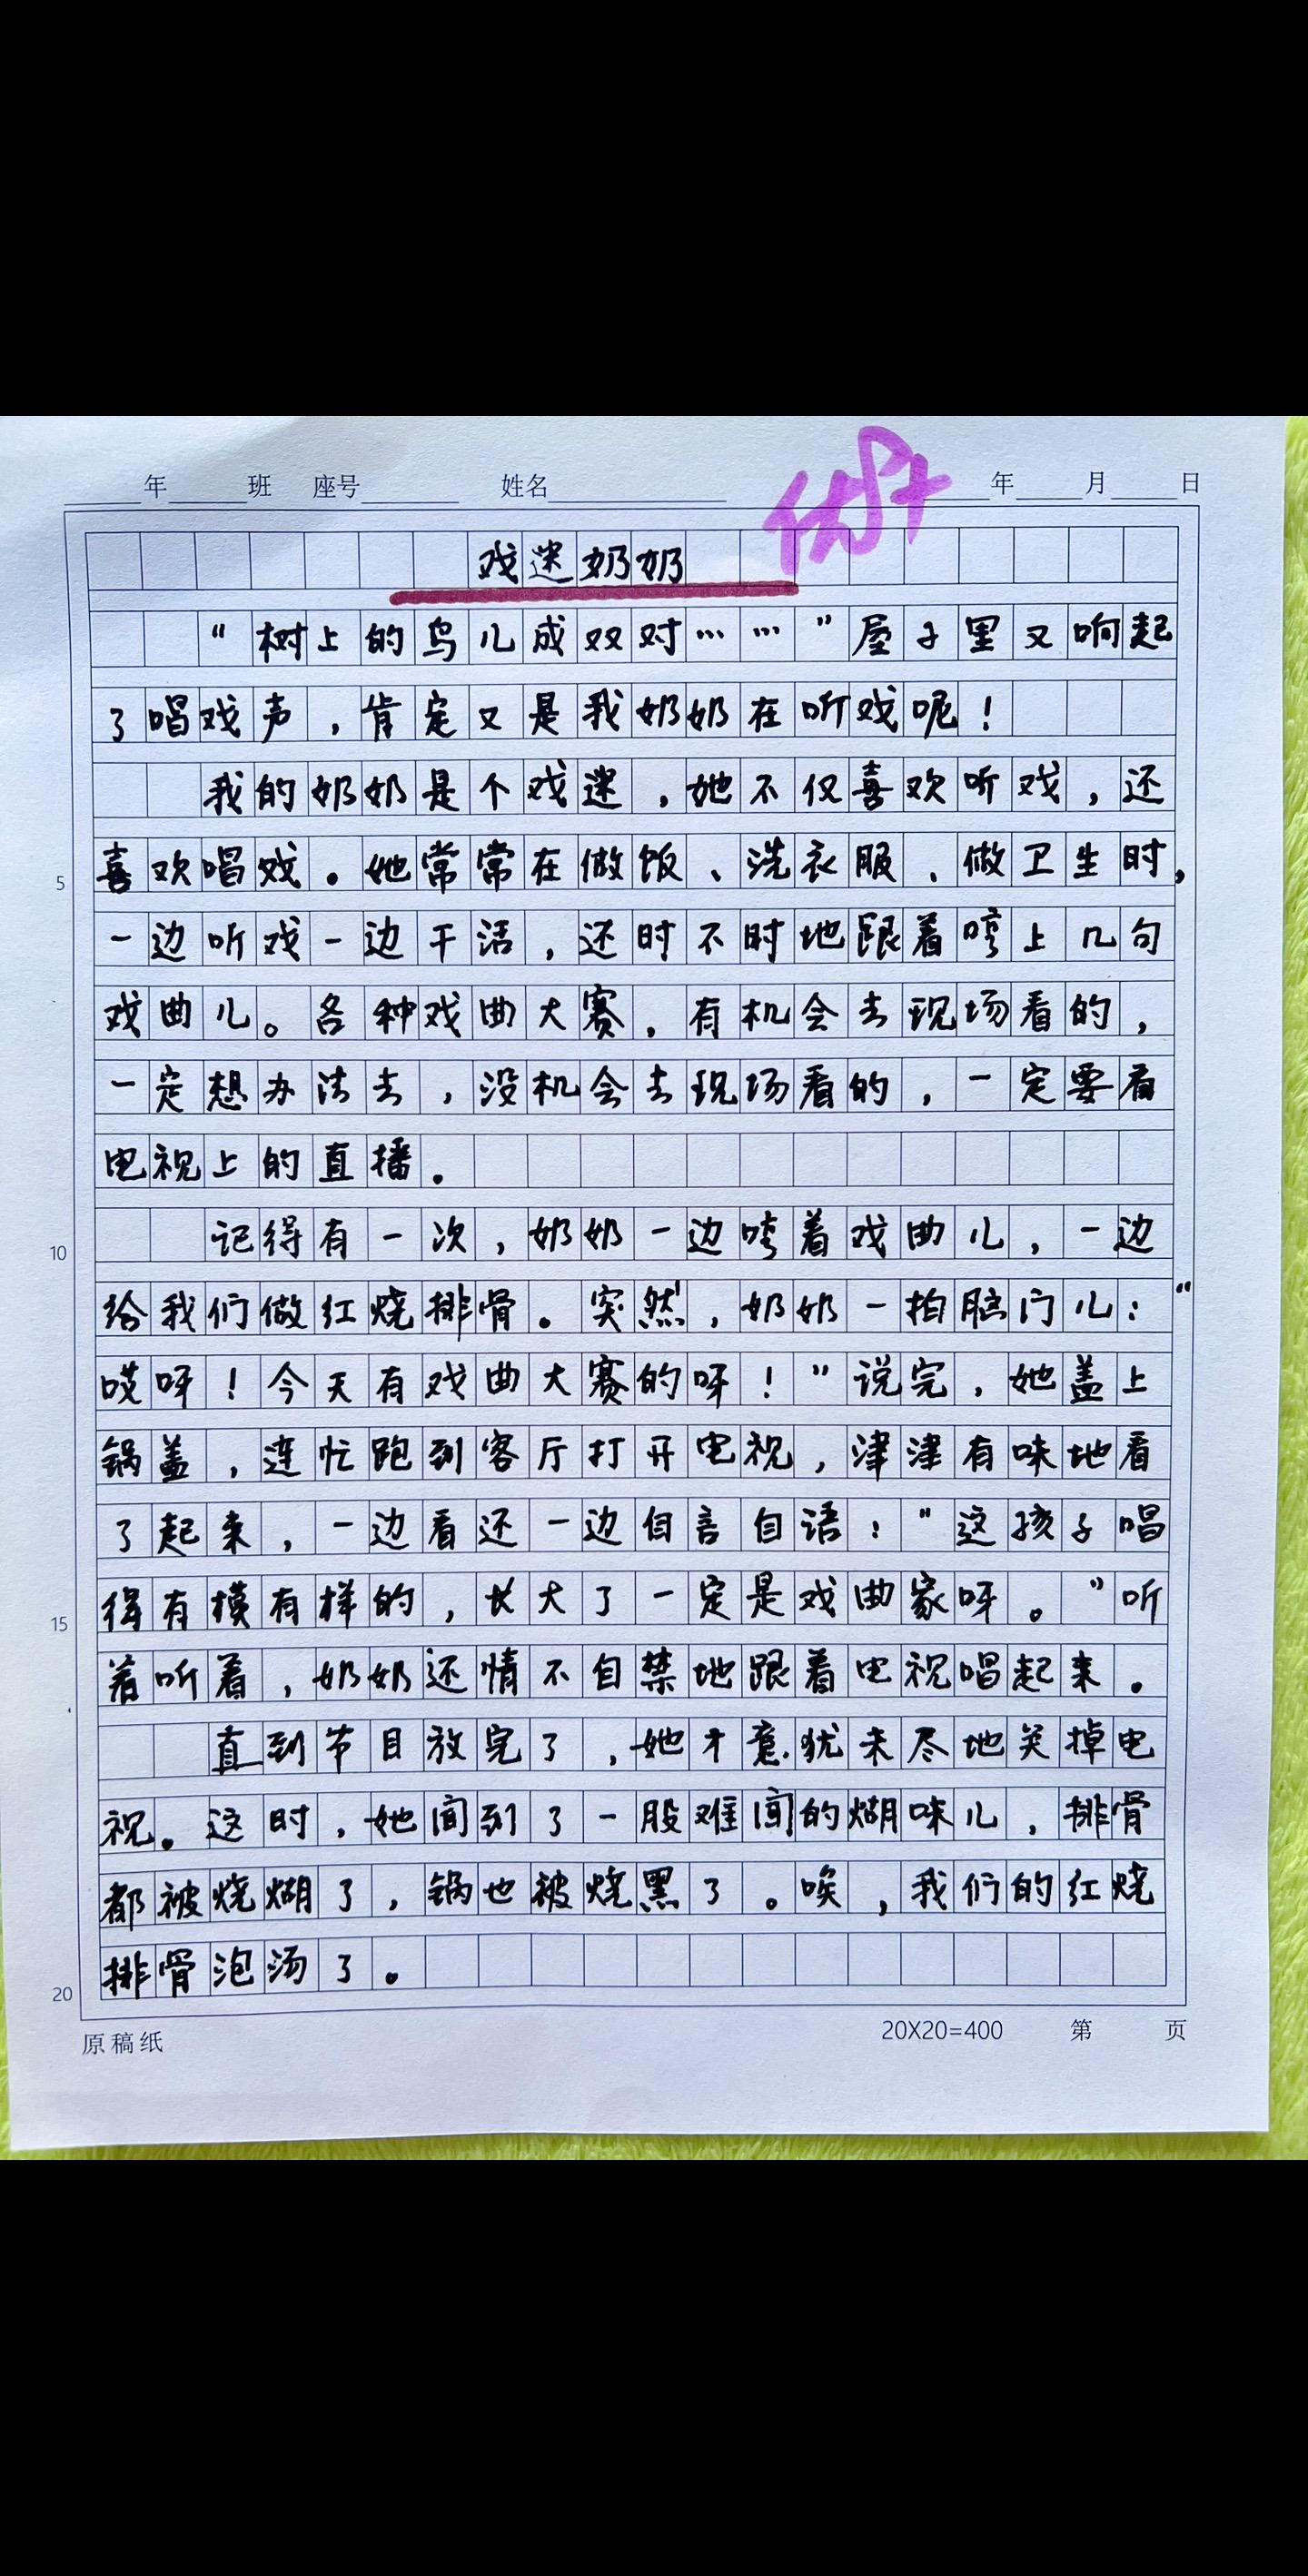 年 班 座号 姓名 年 月 日
优
戏迷奶奶
“树上的鸟儿成双对……”屋子里又响起
了唱戏声，肯定又是我奶奶在听戏呢！
我的奶奶是个戏迷，她不仅喜欢听戏，还
喜欢唱戏。她常常在做饭、洗衣服、做卫生时，
一边听戏一边干活，还时不时地跟着哼上几句
戏曲儿。各种戏曲大赛，有机会去现场看的，
一定想办法去，没机会去现场看的，一定要看
5
电视上的直播。
记得有一次，奶奶一边哼着戏曲儿，一边
10
给我们做红烧排骨。突然，奶奶一拍脑门儿：“
哎呀！今天有戏曲大赛的呀！”说完，她盖上
锅盖，连忙跑到客厅打开电视，津津有味地看
了起来，一边看还一边自言自语：“这孩子唱
得有模有样的，长大了一定是戏曲家呀。”听
15
着听着，奶奶还情不自禁地跟着电视唱起来。
直到节目放完了，她才意犹未尽地关掉电
视。这时，她闻到了一股难闻的煳味儿，排骨
都被烧煳了，锅也被烧黑了。唉，我们的红烧
排骨泡汤了。
20
原稿纸 20X20=400 第 页